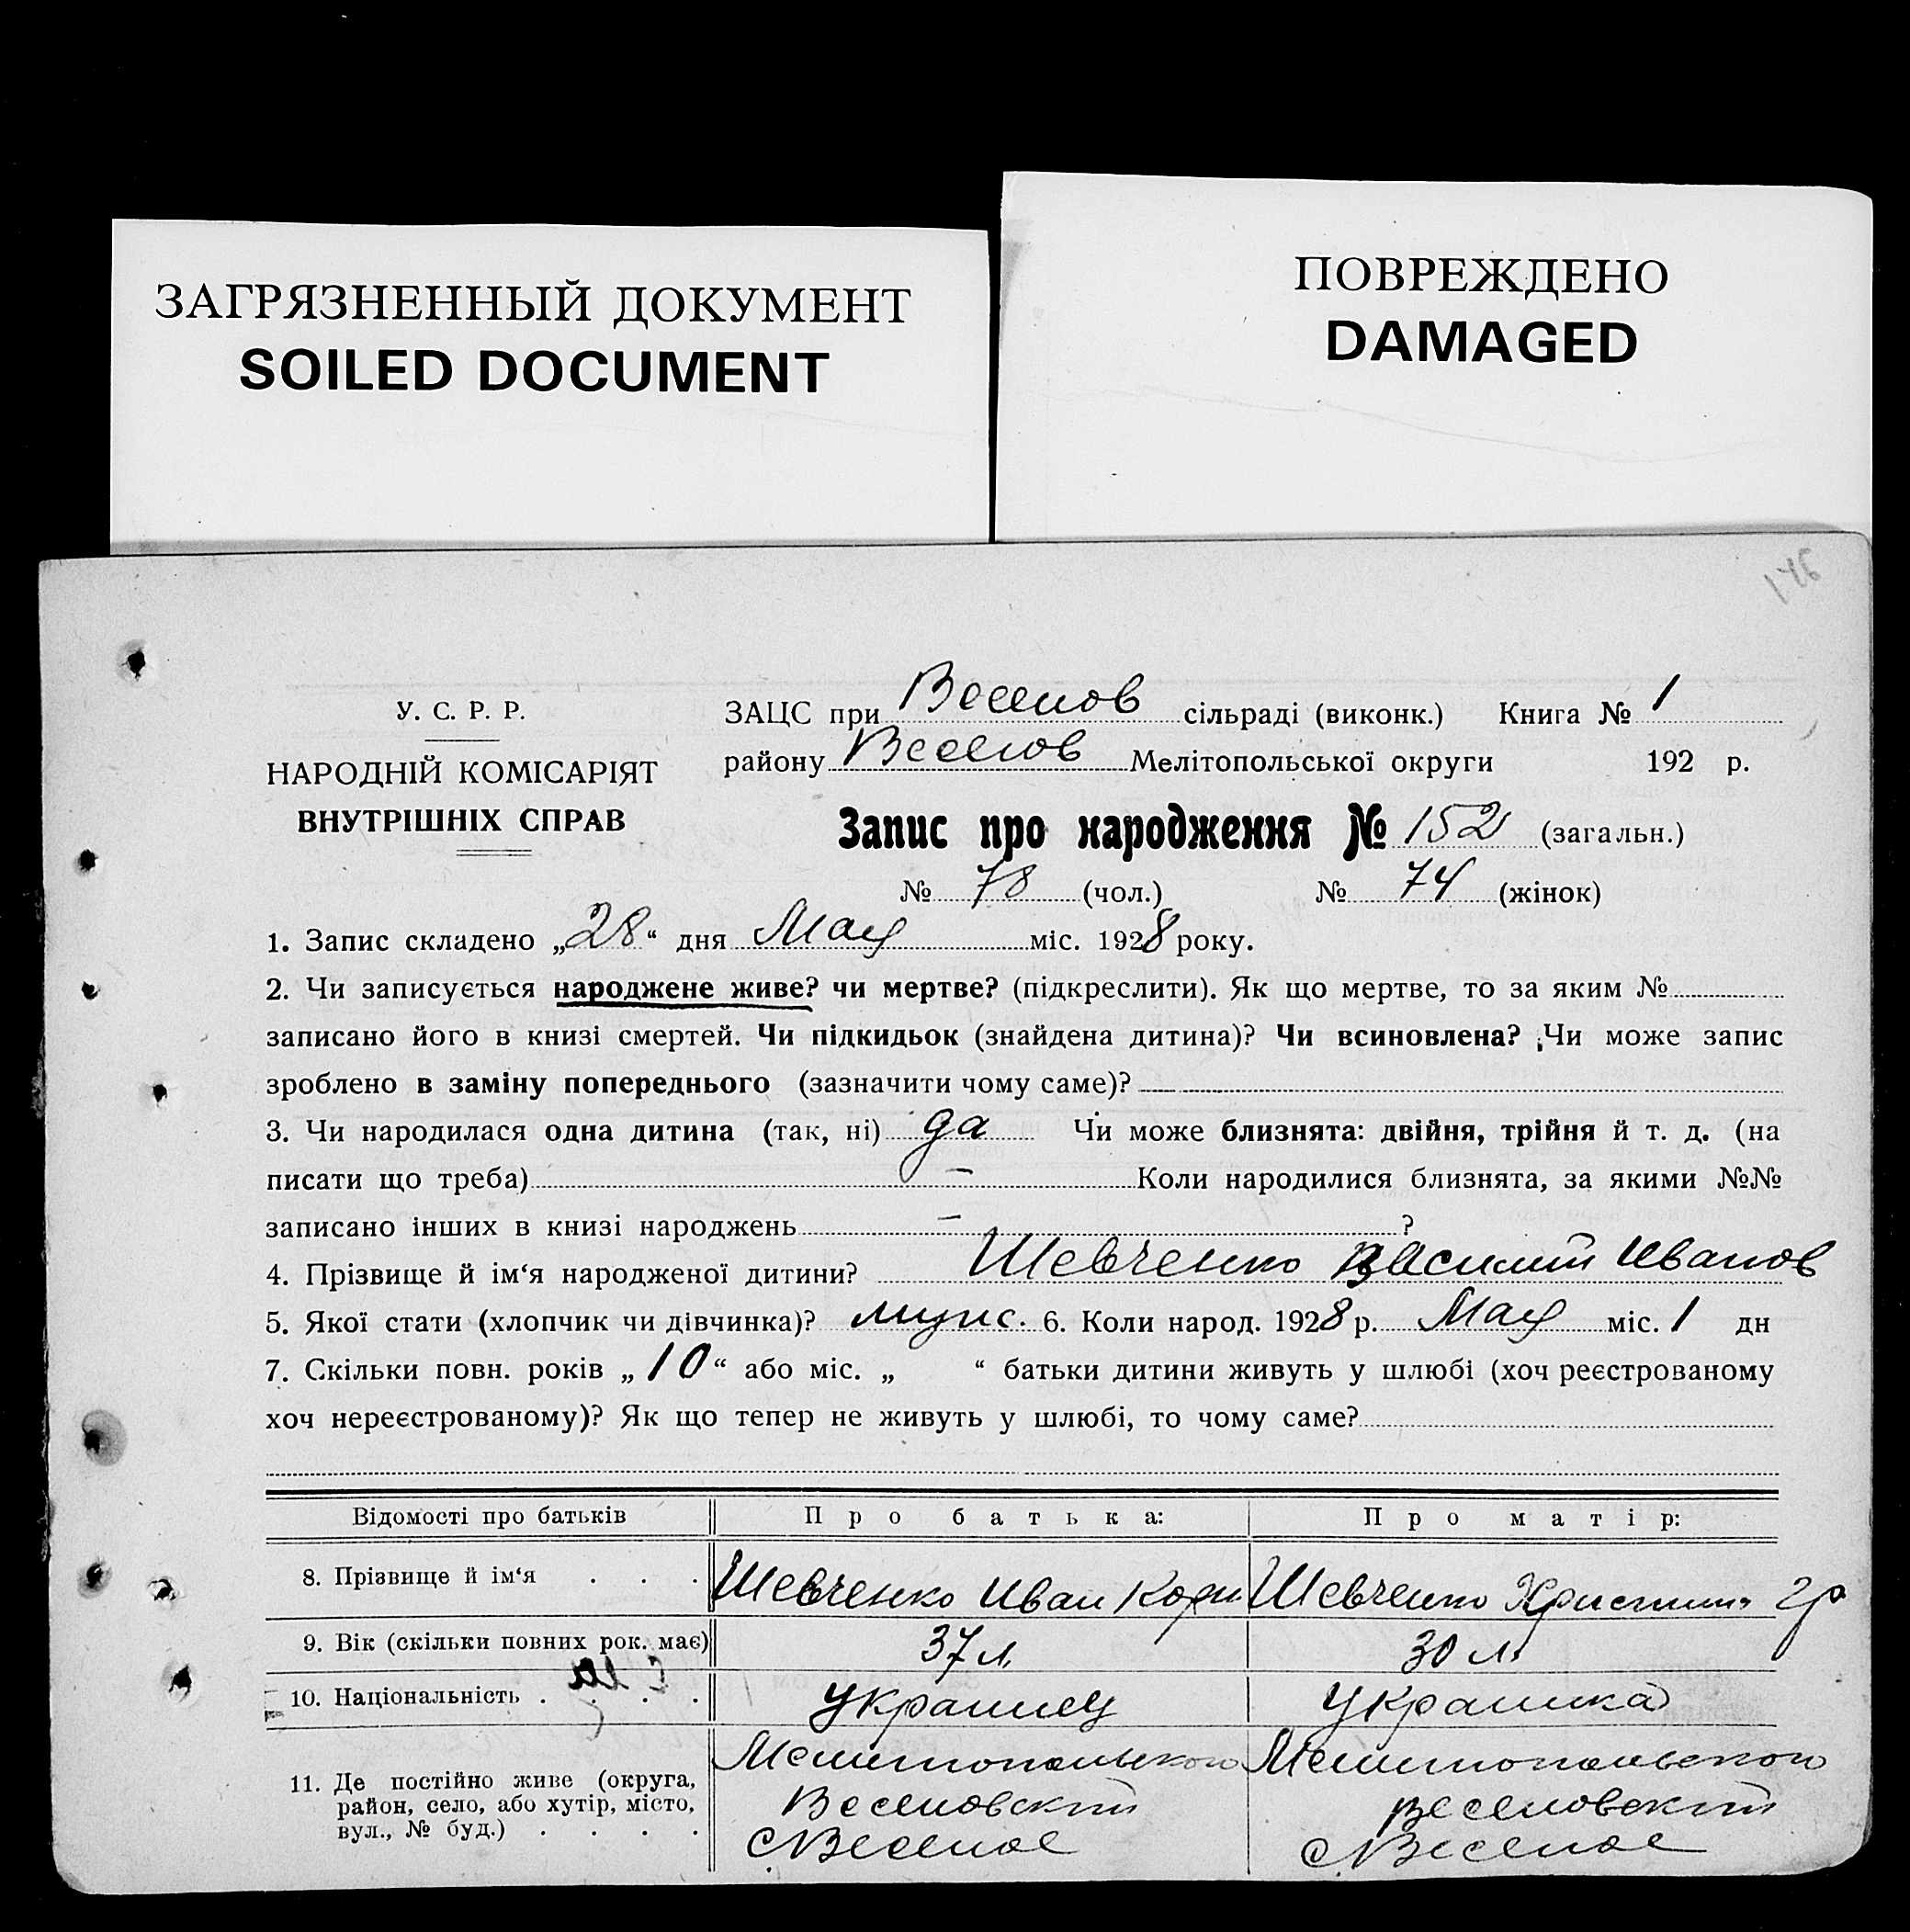 ЗАГРЯЗНЕННЫЙ ДОКУМЕНТ
SOILED DOCUMENT
ПОВРЕЖДЕНО
DAMAGED
146
У. С. Р. Р.
НАРОДНІЙ КОМІСАРІЯТ
ВНУТРІШНІХ СПРАВ
ЗАЦС при Веселов сільраді (виконк.) Книга № 1
району Веселов Мелітопольської округи 192 р.
Запис про народження № 152 (загальн.)
№ 78 (чол.) № 74 (жінок)
1. Запис складено „28“ дня Мая міс. 1928 року.
2. Чи записується народжене живе? чи мертве? (підкреслити). Як що мертве, то за яким №
записано його в книзі смертей. Чи підкидьок (знайдена дитина)? Чи всиновлена? Чи може запис
зроблено в заміну попереднього (зазначити чому саме)? —
3. Чи народилася одна дитина (так, ні) да Чи може близнята: двійня, трійня й т. д. (на
писати що треба) — Коли народилися близнята, за якими №№
записано інших в книзі народжень — ?
4. Прізвище й ім‘я народженої дитини? Шевченко Василий Иванов
5. Якої стати (хлопчик чи дівчинка)? мужс. 6. Коли народ. 1928 р. Мая міс. 1 дн
7. Скільки повн. років „10“ або міс. „ “ батьки дитини живуть у шлюбі (хоч реєстрованому
хоч нереєстрованому)? Як що тепер не живуть у шлюбі, то чому саме?
Відомості про батьків Про батька: Про матір:
8. Прізвище й ім‘я . . . Шевченко Иван Корн Шевченко Христиния Гр
9. Вік (скільки повних рок. має) 37 л. 30 л.
10. Національність . . . . Украинец Украинка
11. Де постійно живе (округа, район, село, або хутір, місто, вул., № буд.) . . . .
Мелитопольского Мелитопольского
Веселовский Веселовский
с. Веселое с. Веселое